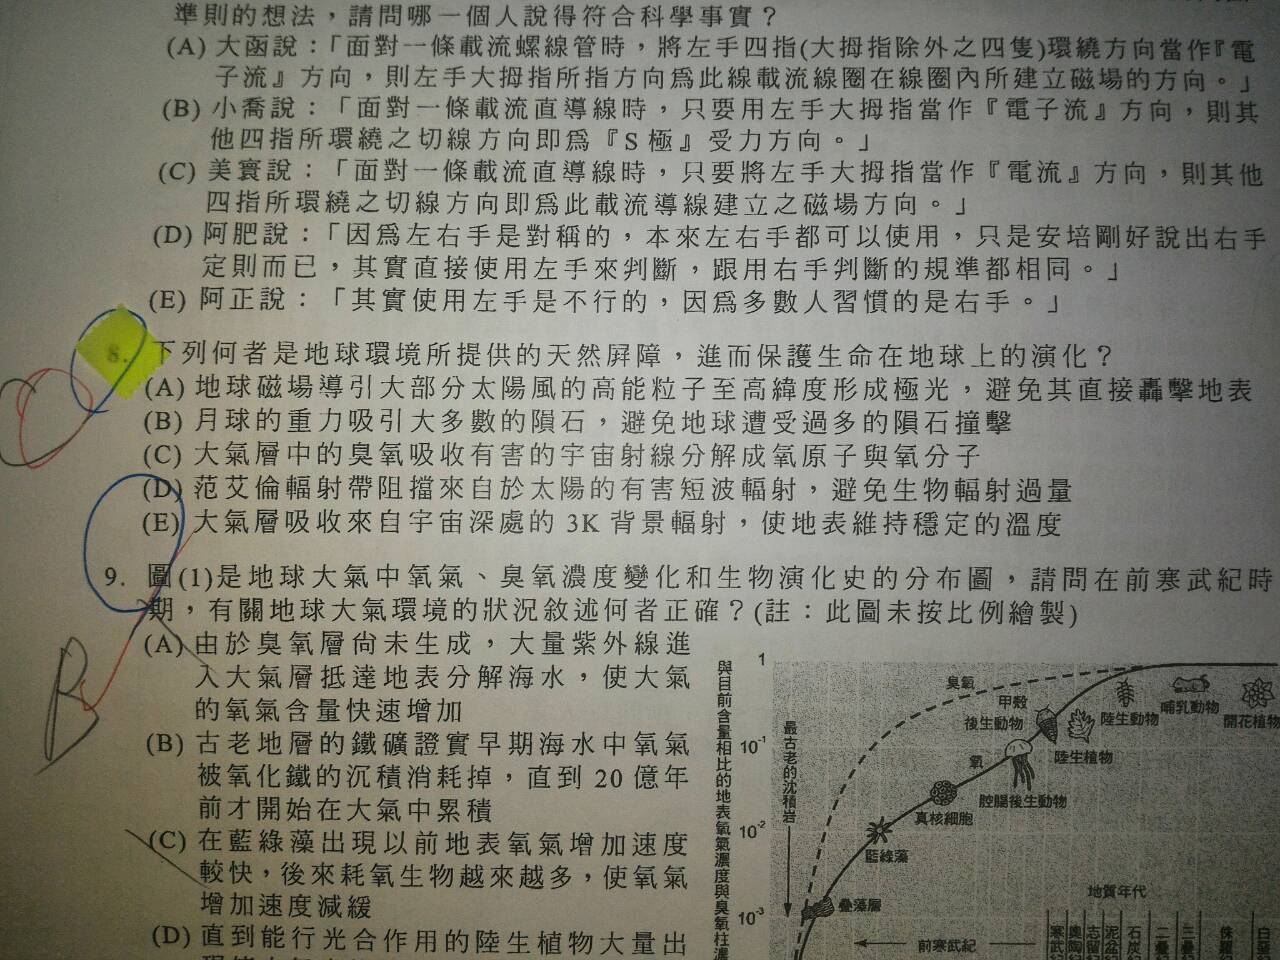 準則的想法，請問哪一個人說得符合科學事實？
(A) 大函說：「面對一條載流螺線管時，將左手四指(大拇指除外之四隻)環繞方向當作『電
子流』方向，則左手大拇指所指方向為此線載流線圈在線圈內所建立磁場的方向。」
(B) 小喬說：「面對一條載流直導線時，只要用左手大拇指當作『電子流』方向，則其
他四指所環繞之切線方向即為『S 極』受力方向。」
(C) 美寰說：「面對一條載流直導線時，只要將左手大拇指當作『電流』方向，則其他
四指所環繞之切線方向即為此載流導線建立之磁場方向。」
(D) 阿肥說：「因為左右手是對稱的，本來左右手都可以使用，只是安培剛好說出右手
定則而已，其實直接使用左手來判斷，跟用右手判斷的規準都相同。」
(E) 阿正說：「其實使用左手是不行的，因為多數人習慣的是右手。」
8. 下列何者是地球環境所提供的天然屏障，進而保護生命在地球上的演化？
(A) 地球磁場導引大部分太陽風的高能粒子至高緯度形成極光，避免其直接轟擊地表
(B) 月球的重力吸引大多數的隕石，避免地球遭受過多的隕石撞擊
(C) 大氣層中的臭氧吸收有害的宇宙射線分解成氧原子與氧分子
(D) 范艾倫輻射帶阻擋來自於太陽的有害短波輻射，避免生物輻射過量
(E) 大氣層吸收來自宇宙深處的 3K 背景輻射，使地表維持穩定的溫度
9. 圖(1)是地球大氣中氧氣、臭氧濃度變化和生物演化史的分布圖，請問在前寒武紀時
期，有關地球大氣環境的狀況敘述何者正確？(註：此圖未按比例繪製)
(A) 由於臭氧層尚未生成，大量紫外線進
入大氣層抵達地表分解海水，使大氣
的氧氣含量快速增加
(B) 古老地層的鐵礦證實早期海水中氧氣
被氧化鐵的沉積消耗掉，直到 20 億年
前才開始在大氣中累積
(C) 在藍綠藻出現以前地表氧氣增加速度
較快，後來耗氧生物越來越多，使氧氣
增加速度減緩
(D) 直到能行光合作用的陸生植物大量出
與目前含量相比的地表氧氣濃度與臭氧柱濃
1
10⁻¹
10⁻²
10⁻³
最古老的沈積岩
臭氧
氧
甲殼
後生動物
陸生動物
哺乳動物
開花植物
陸生植物
腔腸後生動物
真核細胞
藍綠藻
疊藻層
地質年代
前寒武紀
寒武紀
奧陶紀
志留紀
泥盆紀
石炭
二疊
三疊
侏羅
白堊
B